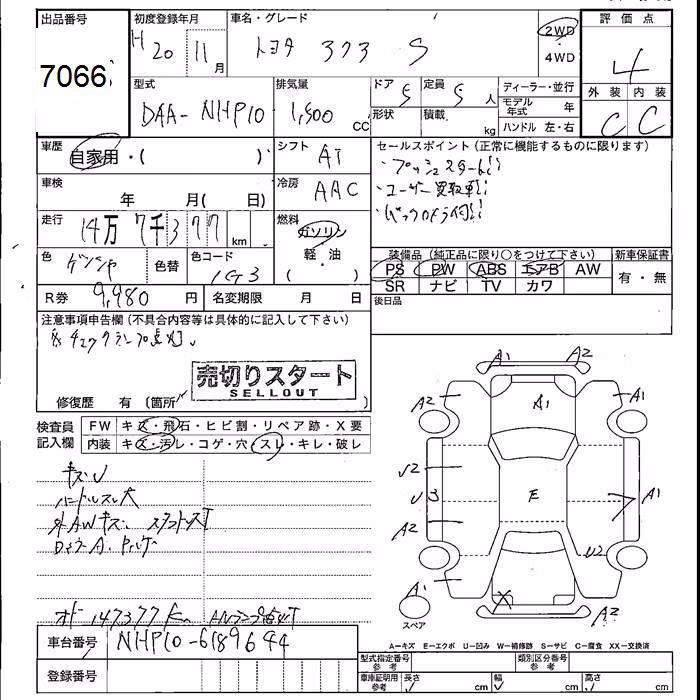 出品番号 初度登録年月 車名・グレード 評価点
7066 H20 11月 トヨタ 373 S 2WD・4WD 4
外装 内装
C C
型式 排気量 ドア 定員 ディーラー・並行
DAA-NHP10 1,500 cc 5 5人 モデル年式 年
形状 積載 kg ハンドル 左・右
車歴 シフト セールスポイント(正常に機能するものに限ります)
自家用・( ) AT ・プッシュスタート!!
車検 冷房 ・ユーザー買取車!!
年 月( 日) AAC ・バックカメラ付!!
走行 燃料
14万7千377km ガソリン
軽・油
( )
色 色替 色コード 装備品(純正品に限り○をつけて下さい) 新車保証書
1G3 PS PW ABS エアB AW 有・無
SR ナビ TV カワ
R券 9,980円 名変期限 月 日 後日品
注意事項申告欄(不具合内容等は具体的に記入して下さい)
※チェックランプ点灯
売切りスタート
SELLOUT
修復歴 有(箇所
検査員記入欄 FW キズ・飛石・ヒビ割・リペア跡・X要
内装 キズ・汚レ・コゲ・穴・スレ・キレ・破レ
キズU
ハンドルスレ大
外AWキズ
147377km
A1 A2
A2 A1 A2
U2 E
U3 A1
A2
U2
A1 X
スペア A2
車台番号 NHP10-6189644
A−キズ E−エクボ U−凹み W−補修跡 S−サビ C−腐食 XX−交換済
登録番号 型式指定番号 参考 類別区分番号 参考
車庫証明用 参考 長さ cm 幅 cm 高さ cm